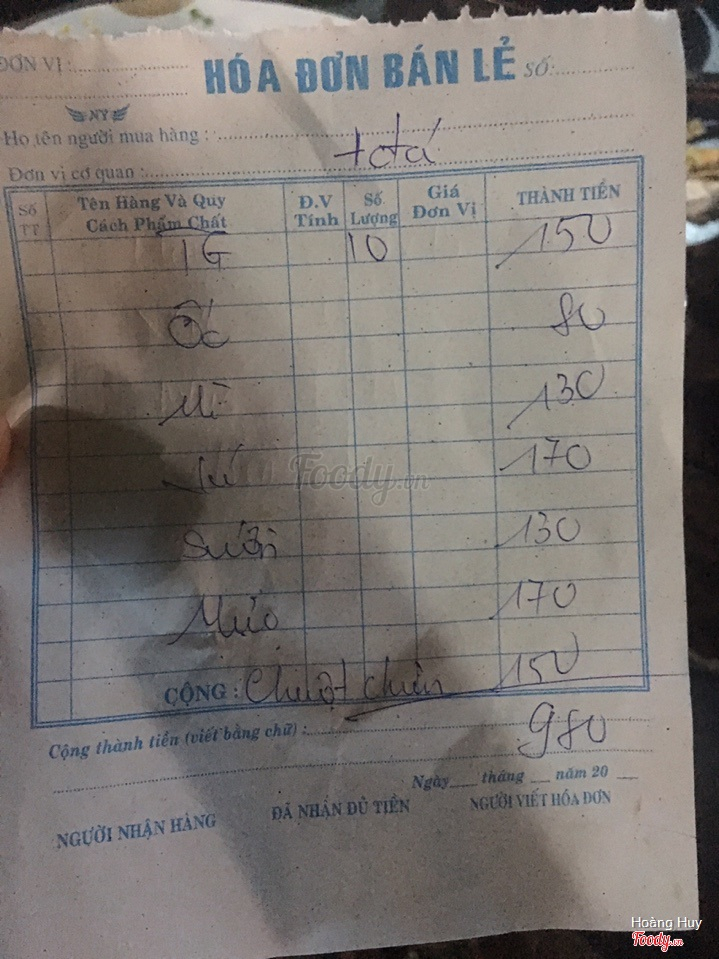 HÓA ĐƠN BÁN LẺ SỐ:
ĐƠN VỊ:
NY
Họ tên người mua hàng :
Đơn vị cơ quan :
Số TT Tên Hàng Và Quy Cách Phẩm Chất Đ.V Tính Số Lượng Giá Đơn Vị THÀNH TIỀN
TG 10 150
Ốc 80
Mì 130
170
Sườn 130
Mực 170
CỘNG : Chuột chiên 150
Cộng thành tiền (viết bằng chữ) : 980
Ngày tháng năm 20
NGƯỜI NHẬN HÀNG ĐÃ NHẬN ĐỦ TIỀN NGƯỜI VIẾT HÓA ĐƠN
Foody.vn
Hoàng Huy
Foody.vn